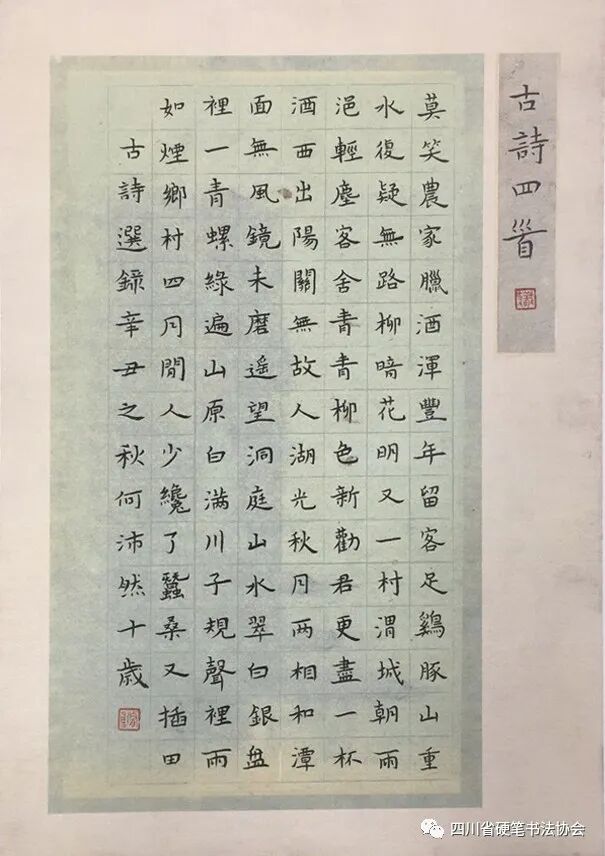 古詩四首
莫笑農家臘酒渾豐年留客足鷄豚山重
水復疑無路柳暗花明又一村渭城朝雨
浥輕塵客舍青青柳色新勸君更盡一杯
酒西出陽關無故人湖光秋月两相和潭
面無風鏡未磨遥望洞庭山水翠白銀盘
裡一青螺綠遍山原白满川子規聲裡雨
如煙鄉村四月閒人少纔了蠶桑又插田
古詩選錄辛丑之秋何沛然十歲
四川省硬笔书法协会